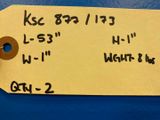 KSC 877/173
L-53" H-1"
W-1" WGHT-8 lbs
QTY-2